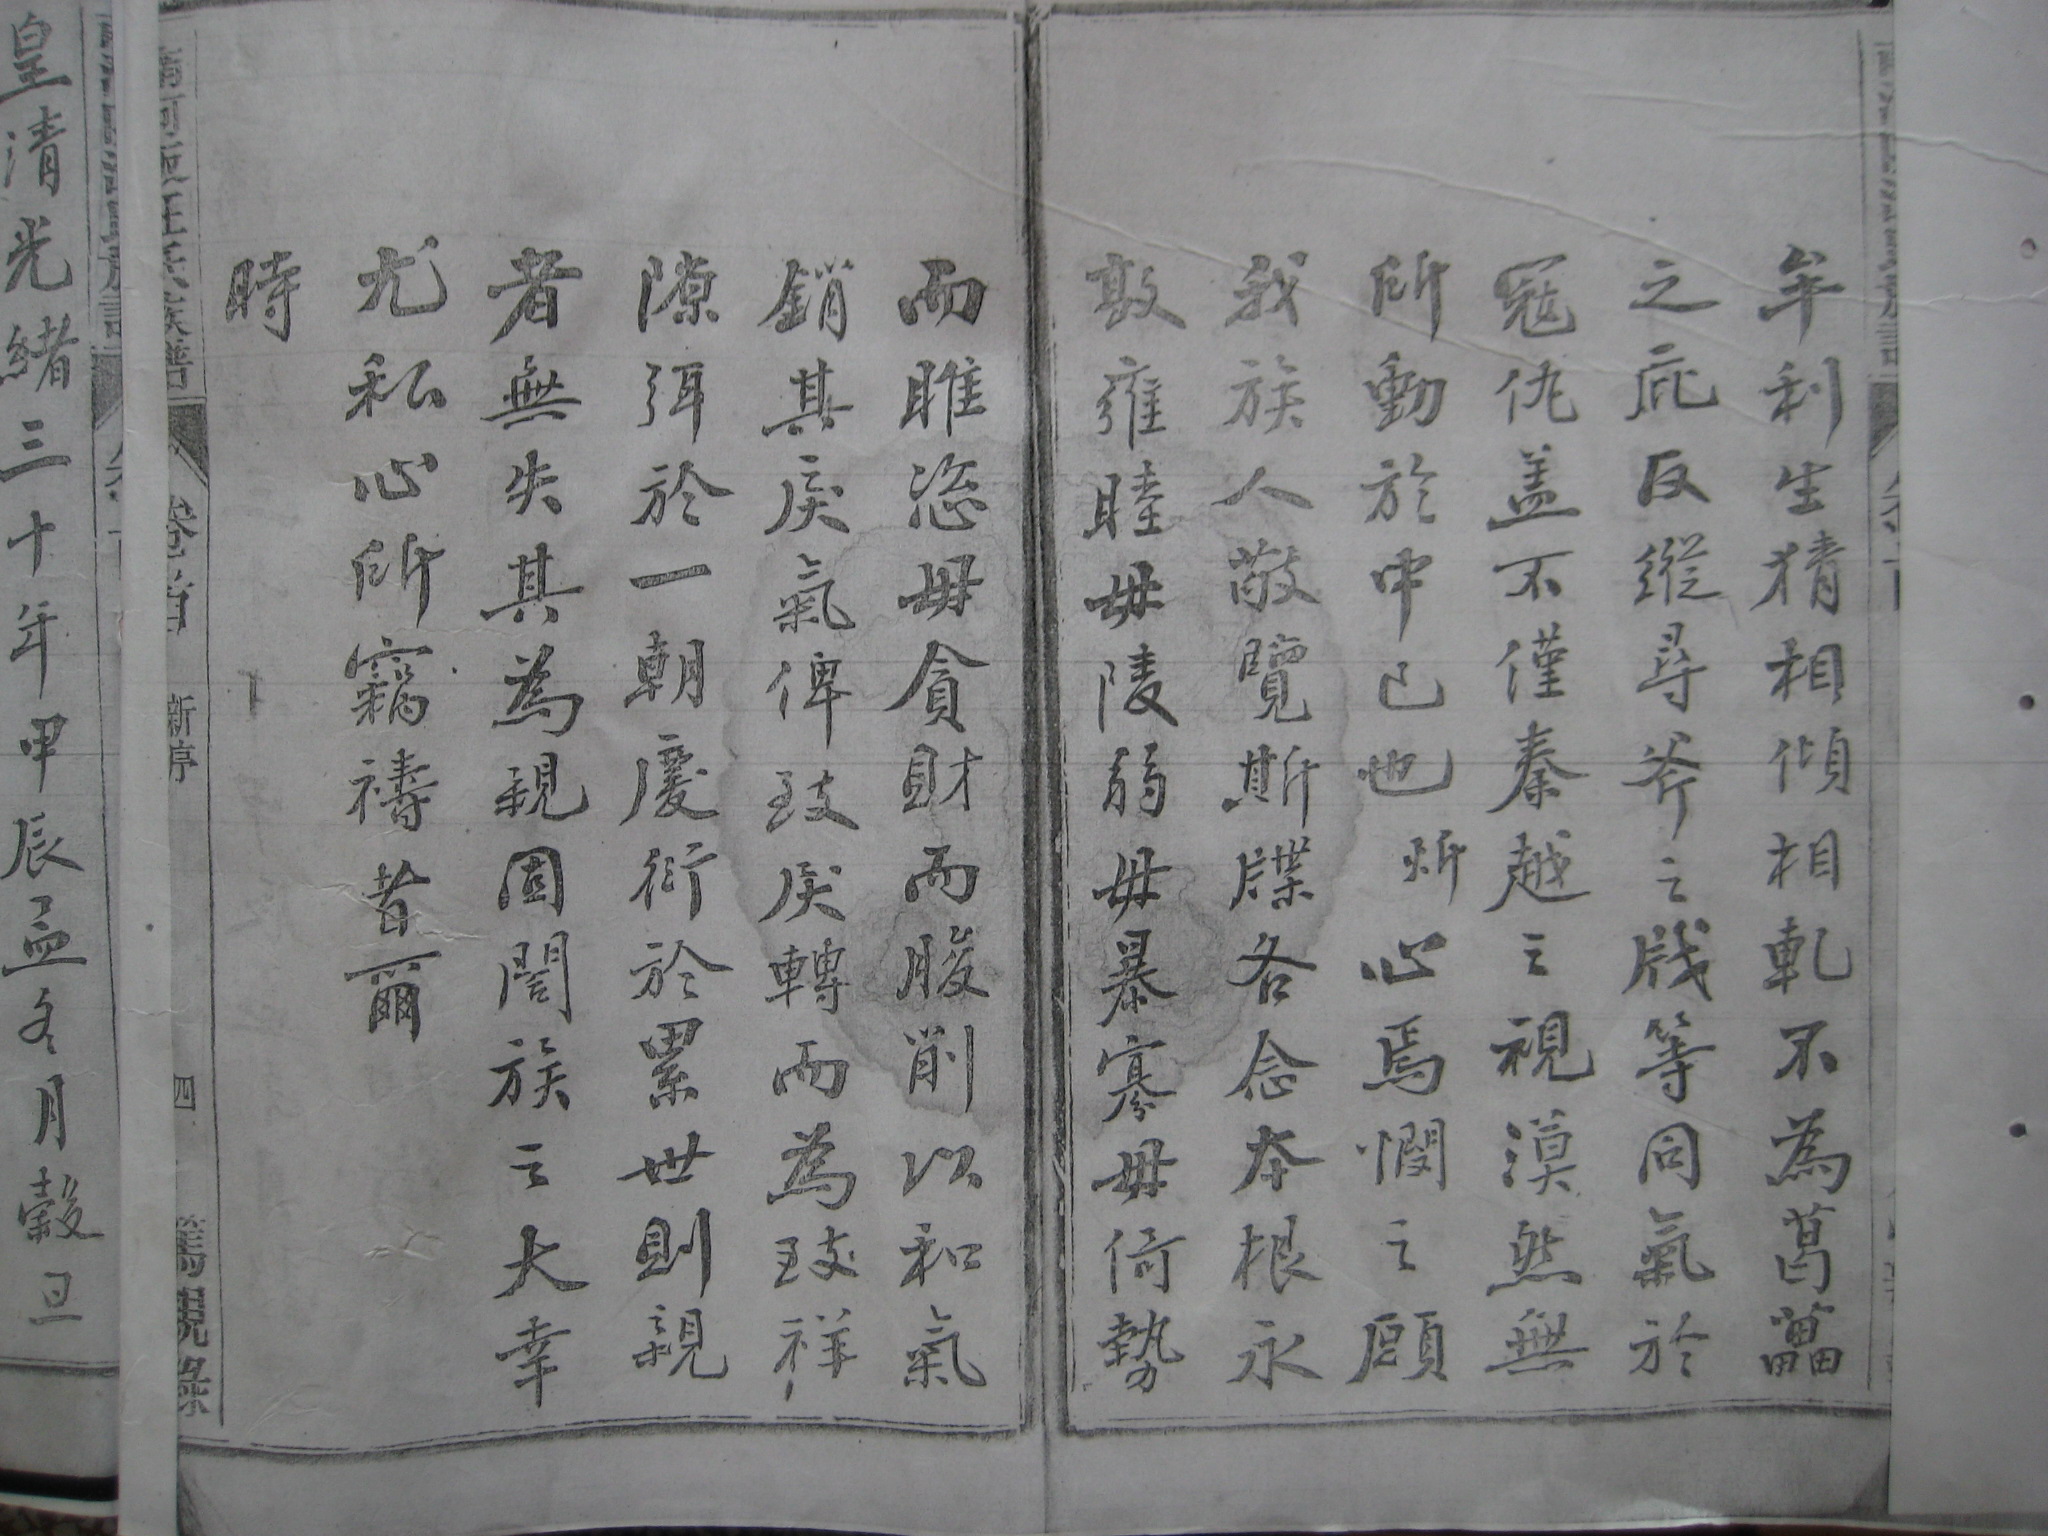 牟利生猜相傾相軋不為葛藟
之庇反縱尋斧之戕等同氣於
冦仇盖不僅秦越之視漠然無
所動於中已也炘心焉憫之願
我族人敬覽斯牒各念本根永
敦雍睦毋陵弱毋暴寡毋倚勢
而睢恣毋貪財而朘削以和氣
銷其戾氣俾致戾轉而為致祥
隙弭於一朝慶衍於累世則親
者無失其為親固闔族之大幸
尤私心所竊禱者爾
時
族譜
卷首
新序
四
皇清光緒三十年甲辰孟冬月穀旦